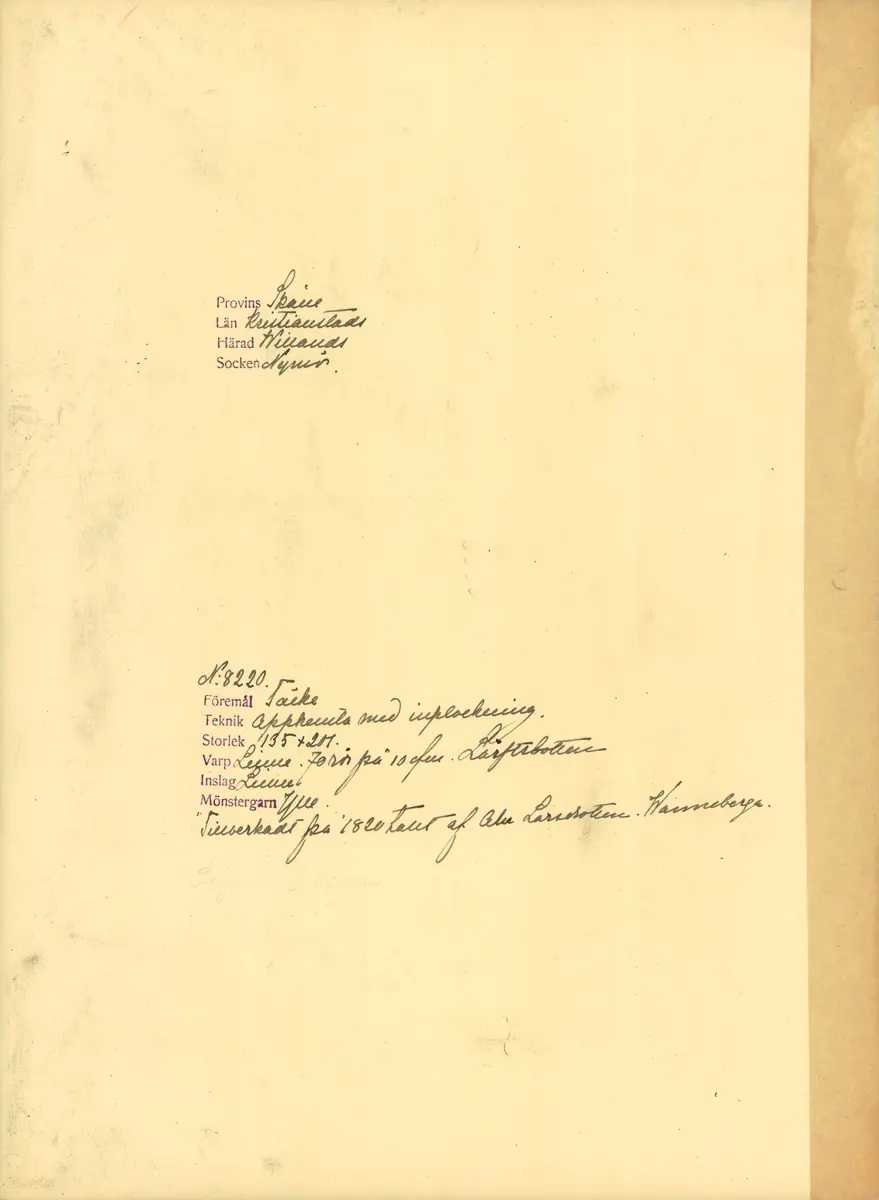 Provins Skåne
Län Kristianstads
Härad Willands
Socken Nymö.
N:8220.
Föremål Täcke
Teknik Opphemta med inplockning.
Storlek 135 x 201.
Varp Linne. 70 rör på 10 cm. Lärftsbotten
Inslag Linne.
Mönstergarn Ylle.
Tillverkadt på 1820 talet af Larsdotter. Wanneberga.